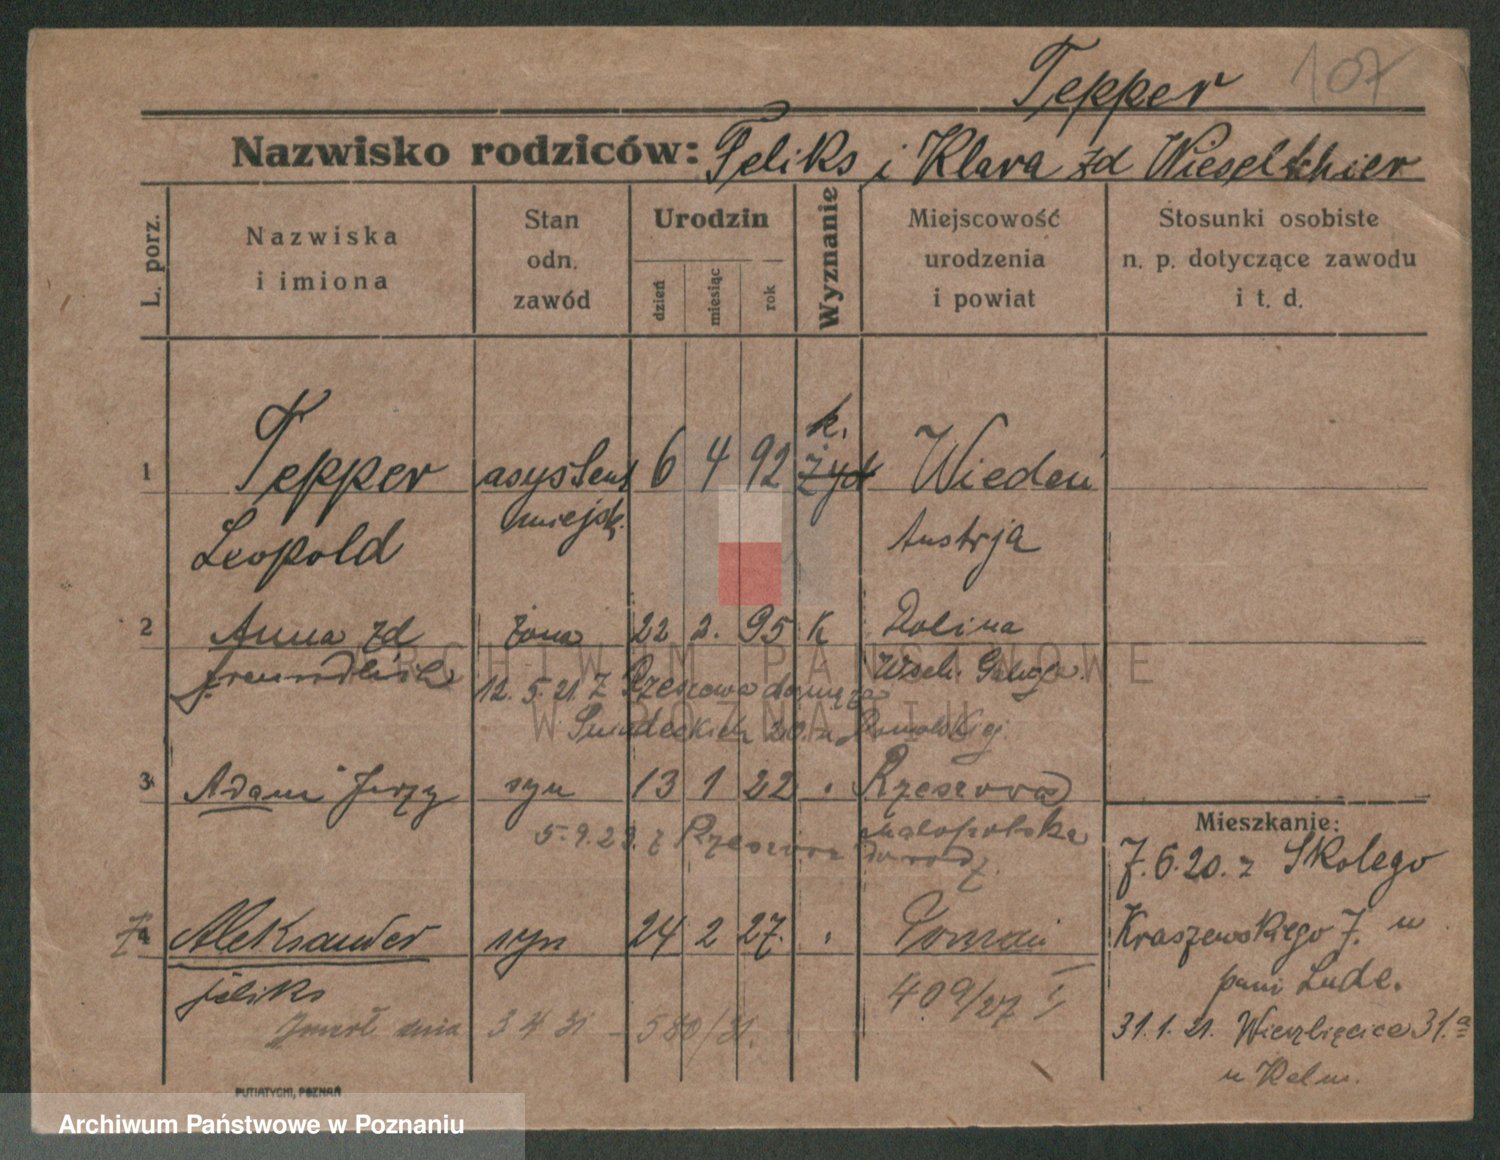 Tepper 107
Nazwisko rodziców: Feliks i Klara zd Wieselthier
L. porz.
Nazwiska
i imiona
Stan
odn.
zawód
Urodzin
dzień
miesiąc
rok
Wyznanie
Miejscowość
urodzenia
i powiat
Stosunki osobiste
n. p. dotyczące zawodu
i t. d.
k.
1 Tepper asystent 6 4 92 Żyd Wiedeń
miejsk.
Leopold Austrja
2 Anna zd żona 22 2. 95 k Dolina
Wsch. Galicja.
12. 5. 21 z Rzeszowa do męża
Śniadeckich 20. u
3 Adam Jerzy syn 13 1 22 Rzeszowa
Małopolska
5.9.23. z Rzeszowa
Mieszkanie:
7.6.20. z Skolego
Kraszewskiego 7. u
pani Lude.
31.1.21. Wierzbięcice 31.a
u Kelm.
Aleksander syn 24 2 27. Poznań
Feliks 409/27 I
zmarł dnia 3 4 31 - 580/31.
PUTIATYCKI, POZNAŃ
ARCHIWUM PAŃSTWOWE
W POZNANIU
Archiwum Państwowe w Poznaniu